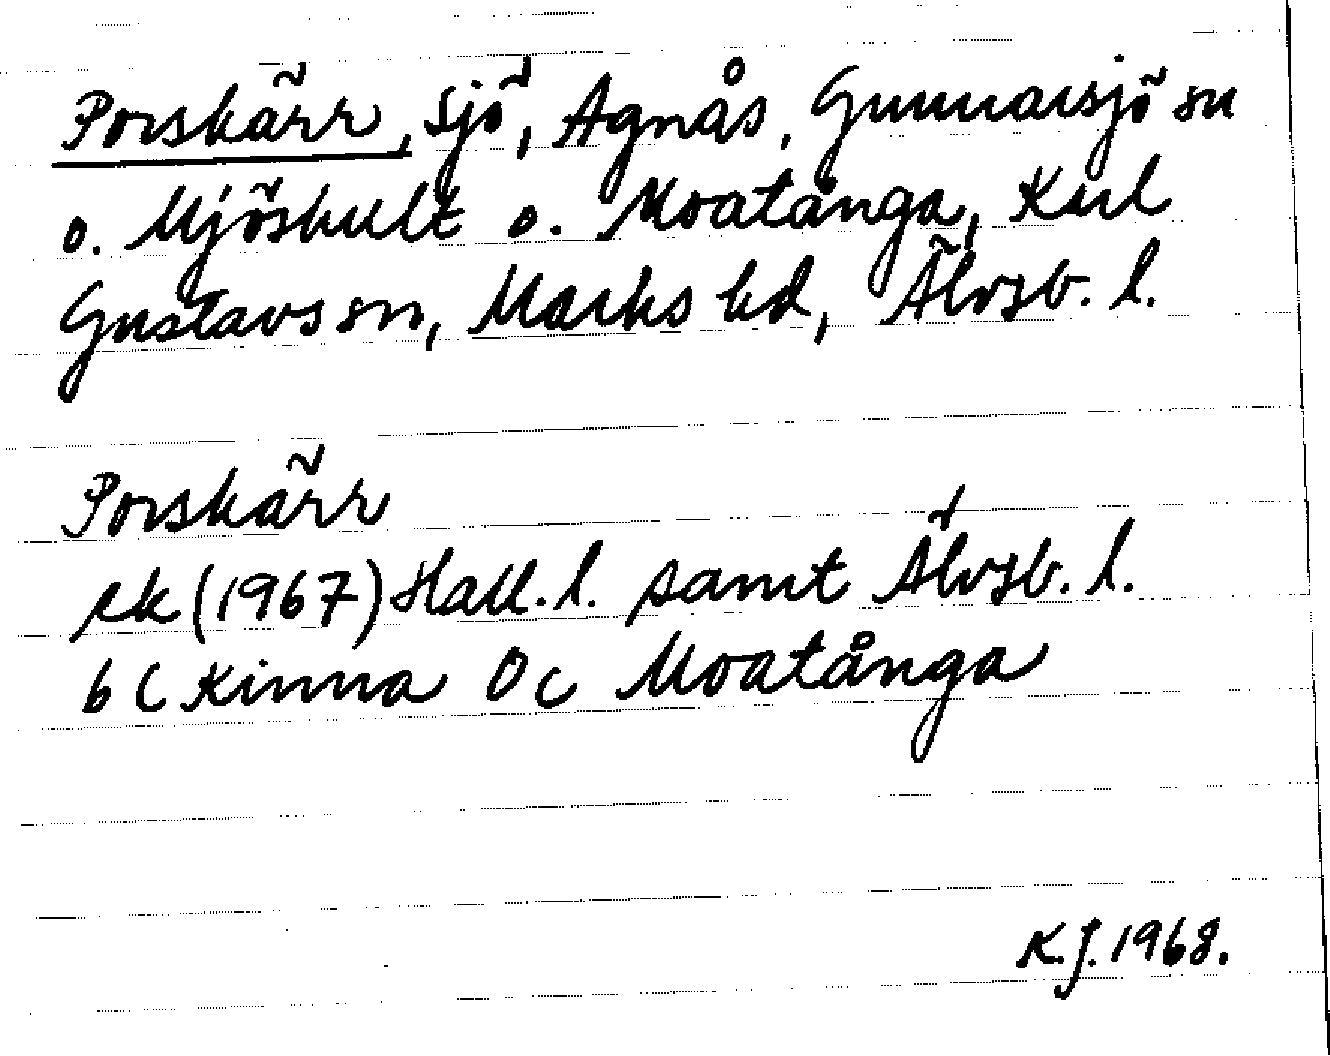 Porskärr, sjö, Agnås, Gunnarsjö sn
o. Mjöshult o. Moatånga, Karl
Gustavs sn, Marks hd, Älvsb. l.
Porskärr
ek (1967) Hall. l. samt Älvsb. l.
6 C Kinna 0 c Moatånga
K.J. 1968.